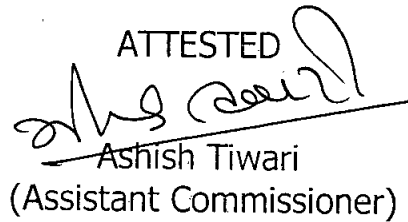 ATTESTED
Ashish Tiwari
(Assistant Commissioner)